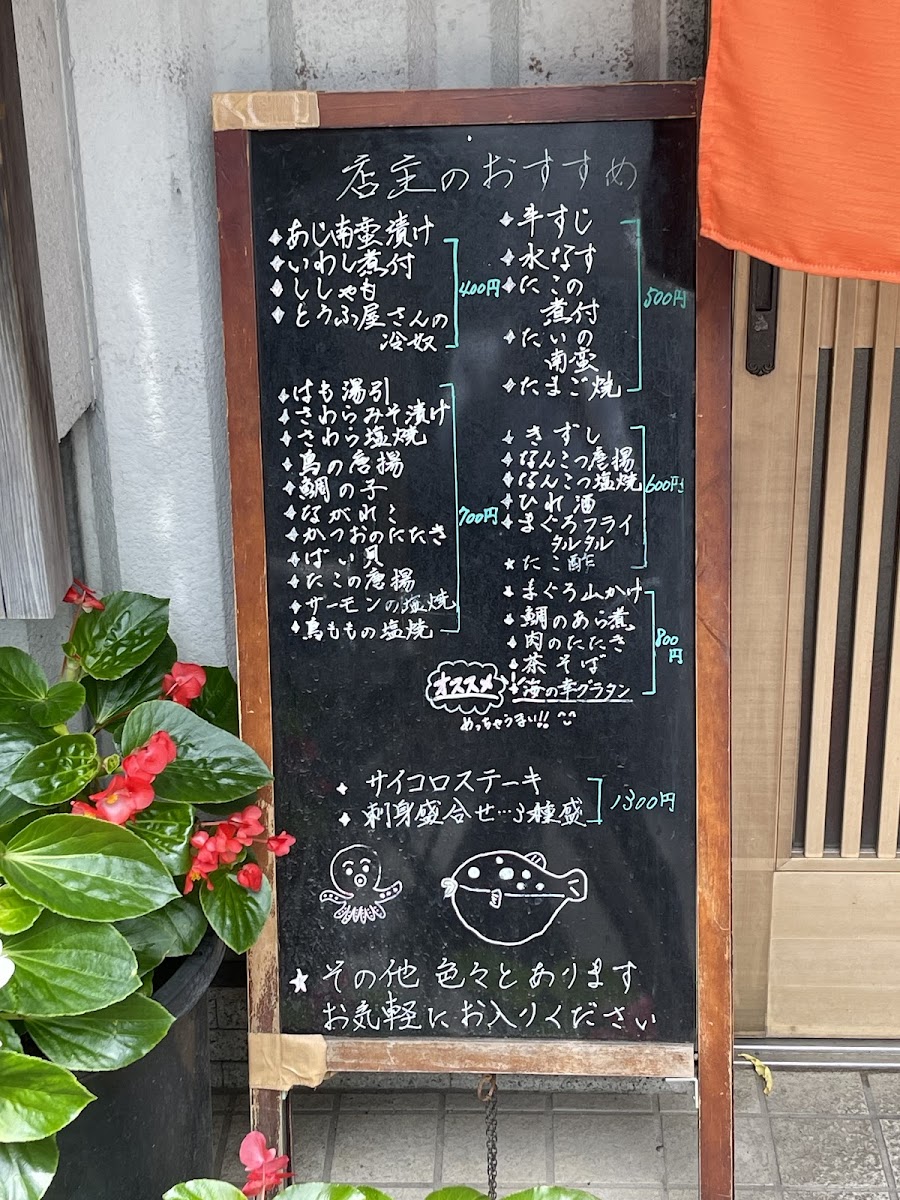 店主のおすすめ
あじ南蛮漬け
いわし煮付
ししゃも
とうふ屋さんの
冷奴
400円
はも湯引
さわらみそ漬け
さわら塩焼
鳥の唐揚
鯛の子
ながれこ
かつおのたたき
ばい貝
たこの唐揚
サーモンの塩焼
鳥ももの塩焼
700円
牛すじ
水なす
たこの
煮付
たいの
南蛮
たまご焼
500円
きずし
なんこつ唐揚
なんこつ塩焼
ひれ酒
まぐろフライ
タルタル
たこ酢
600円
まぐろ山かけ
鯛のあら煮
肉のたたき
茶そば
海の幸グラタン
800
円
オススメ!
めっちゃうまい!!
サイコロステーキ
刺身盛合せ…3種盛
1300円
★その他 色々とあります
お気軽にお入りください